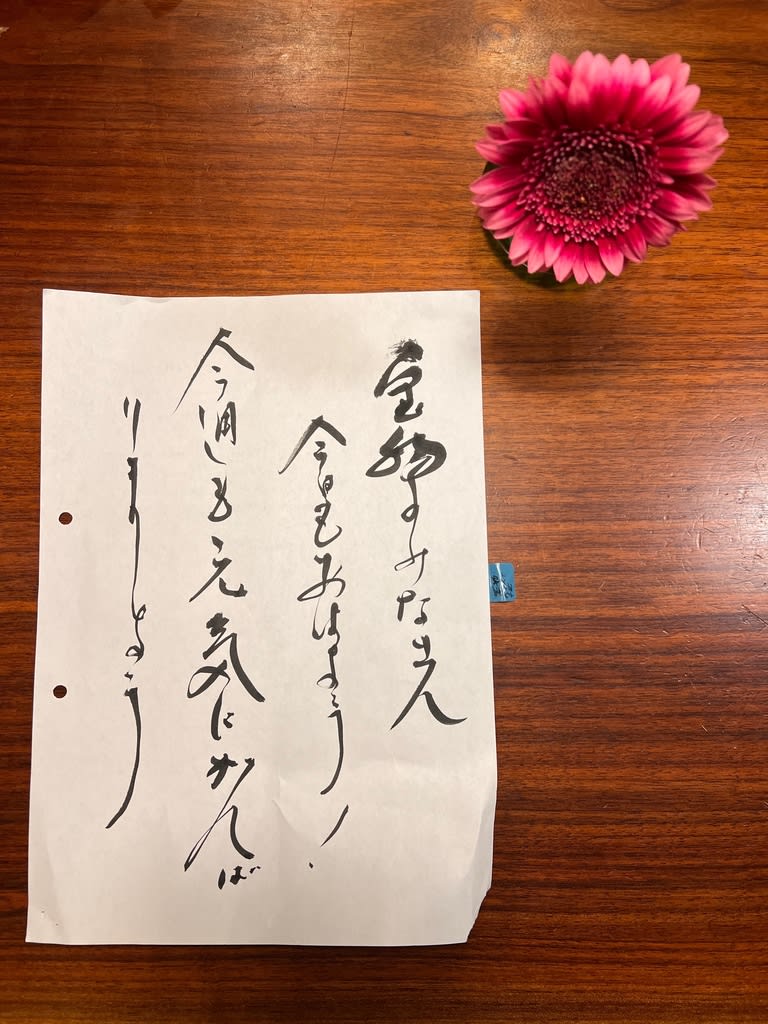 宝物よみなさん
今日もおはよう!
今週も元気にがんば
りましょう